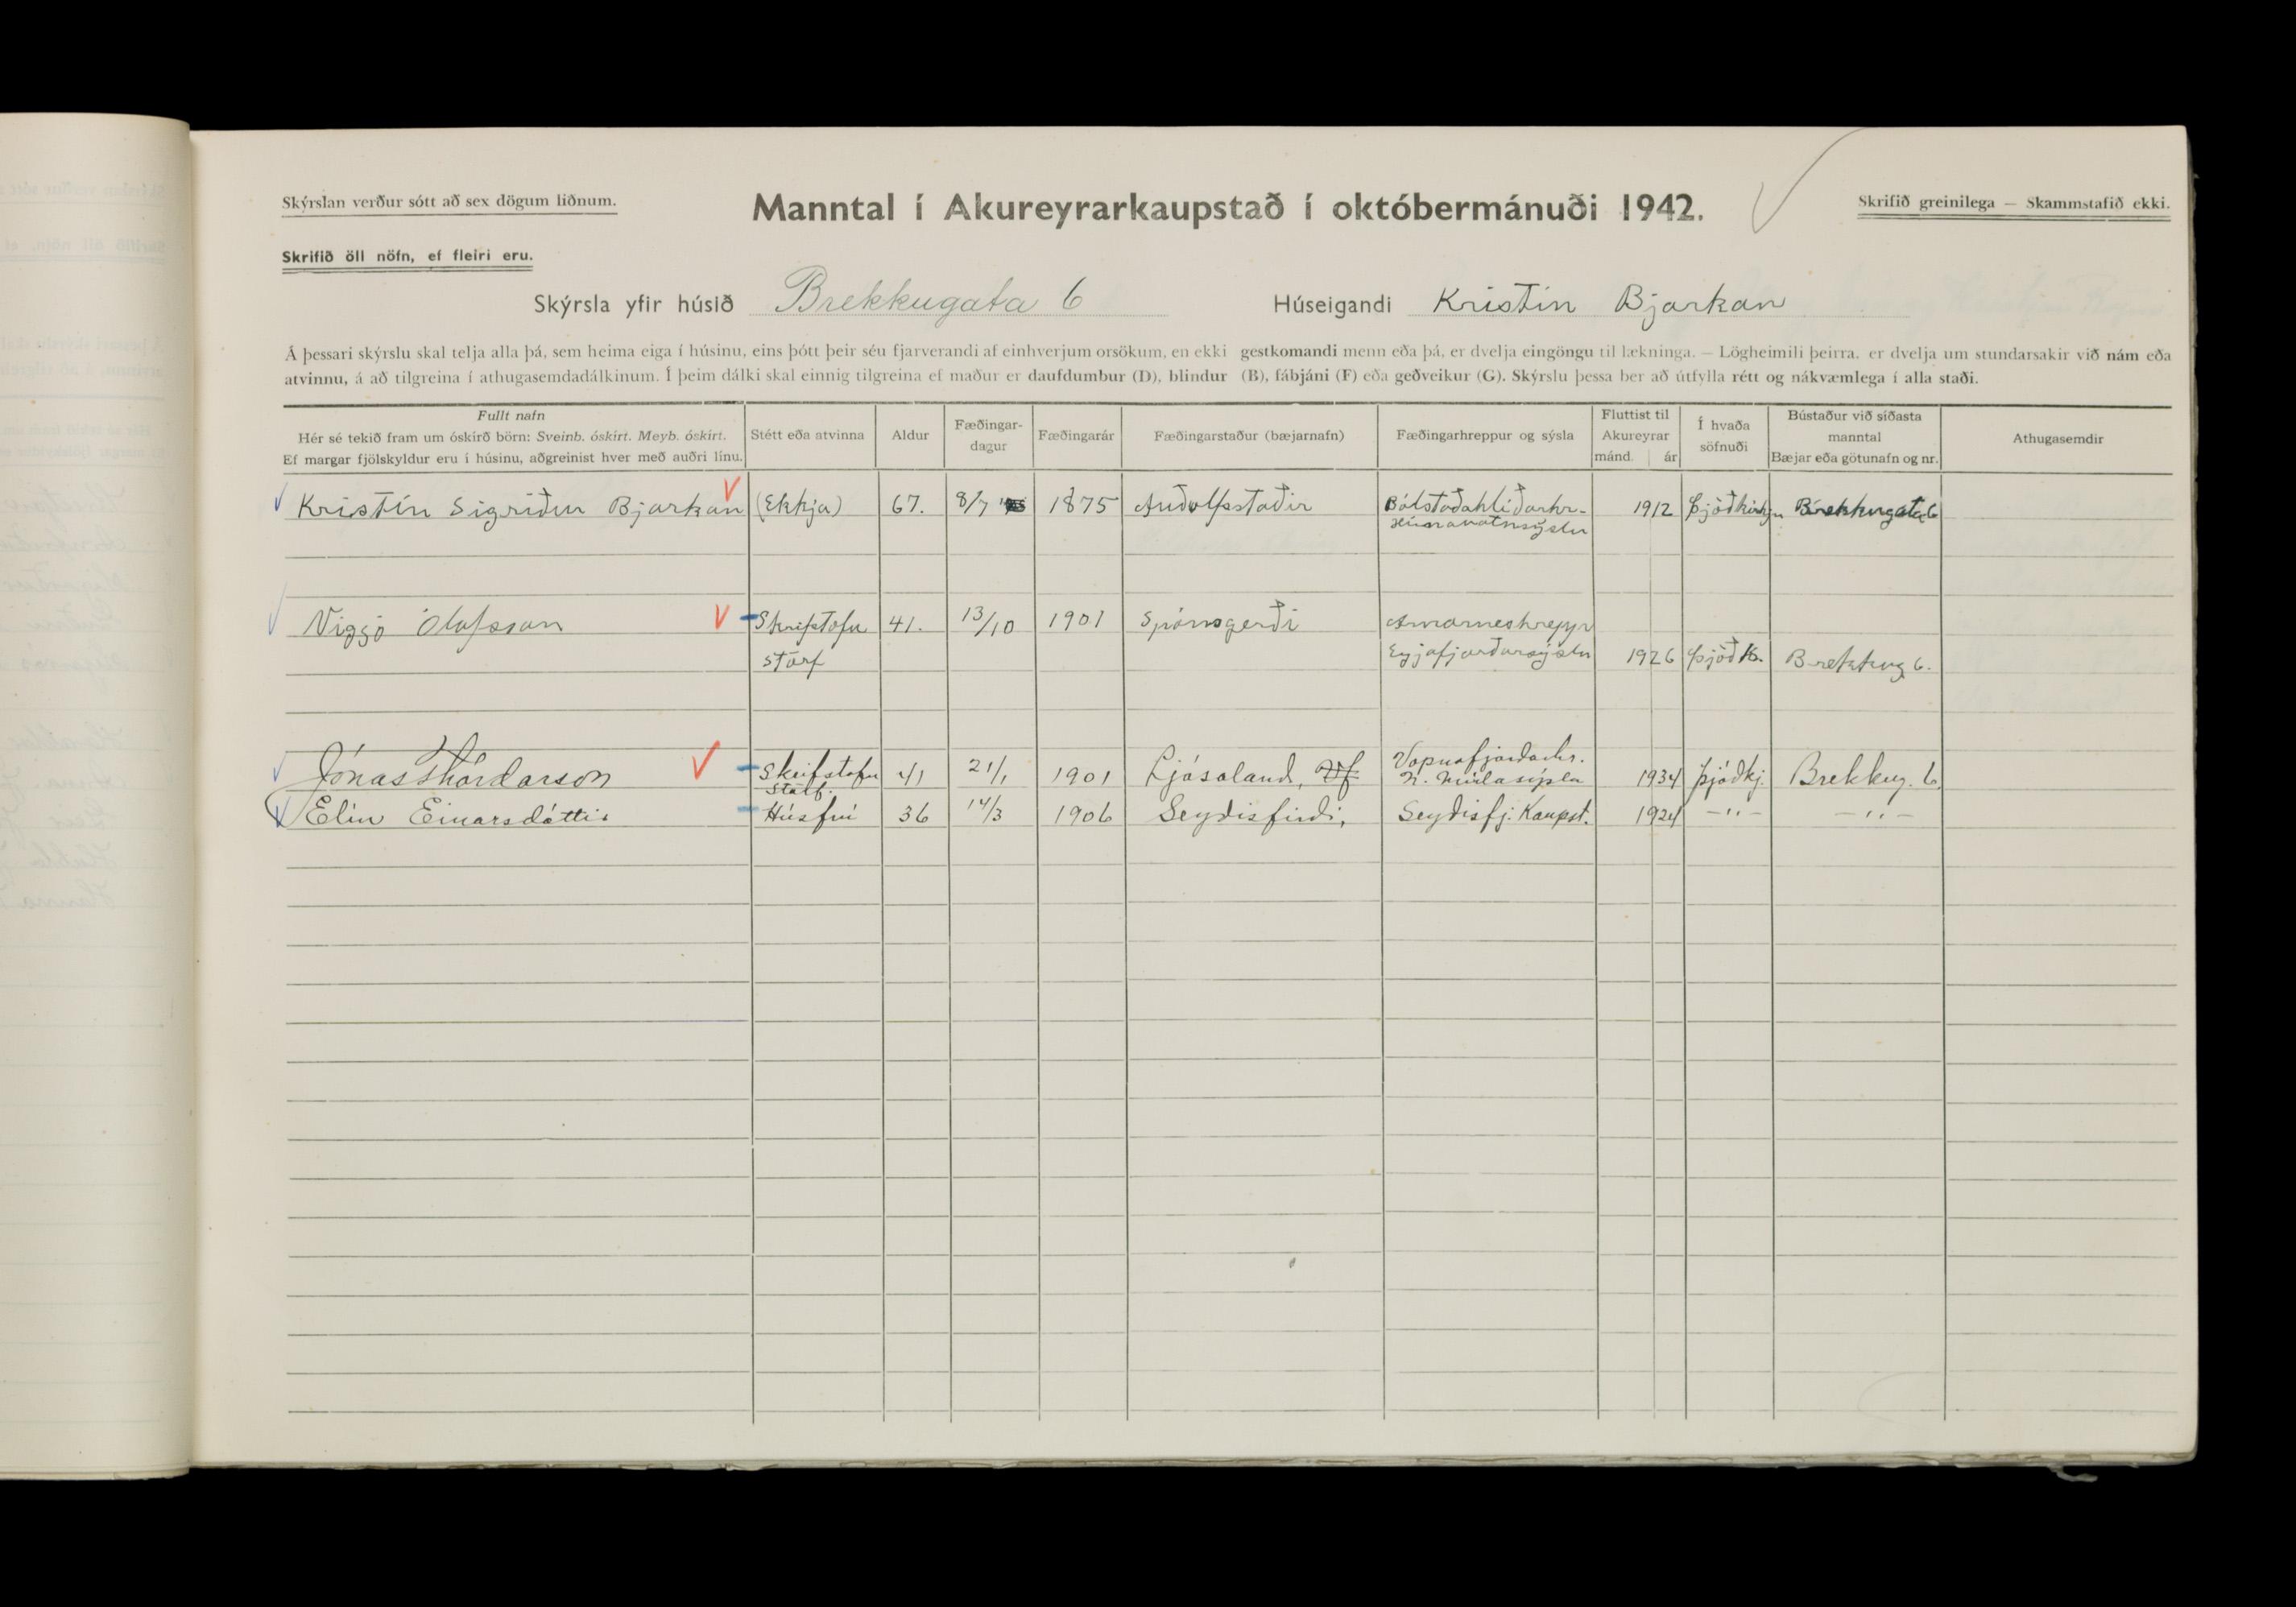 Skýrslan verður sótt að sex dögum liðnum.
Manntal í Akureyrarkaupstað í októbermánuði 1942.
Skrifið greinilega — Skammstafið ekki.
Skrifið öll nöfn, ef fleiri eru.
Skýrsla yfir húsið Brekkugata 6 Húseigandi Kristín Bjarkan
Á þessari skýrslu skal telja alla þá, sem heima eiga í húsinu, eins þótt þeir séu fjarverandi af einhverjum orsökum, en ekki gestkomandi menn eða þá, er dvelja eingöngu til lækninga. — Lögheimili þeirra, er dvelja um stundarsakir við nám eða
atvinnu, á að tilgreina í athugasemdadálkinum. Í þeim dálki skal einnig tilgreina ef maður er daufdumbur (D), blindur (B), fábjáni (F) eða geðveikur (G). Skýrslu þessa ber að útfylla rétt og nákvæmlega í alla staði.
Fullt nafn
Hér sé tekið fram um óskírð börn: Sveinb. óskírt. Meyb. óskírt.
Ef margar fjölskyldur eru í húsinu, aðgreinist hver með auðri línu.
Stétt eða atvinna
Aldur
Fæðingar-
dagur
Fæðingarár
Fæðingarstaður (bæjarnafn)
Fæðingarhreppur og sýsla
Fluttist til
Akureyrar
mánd. ár
Í hvaða
söfnuði
Bústaður við síðasta
manntal
Bæjar eða götunafn og nr.
Athugasemdir
Kristín Sigríður Bjarkan (Ekkja) 67. 8/7 1875 Auðolfsstaðir Bólstaðahlíðarhr- 1912 Þjóðkirkju Brekkugata 6
Húnavatnsýslu
Viggó Ólafsson Skrifstofu 41. 13/10 1901 Spónsgerði Arnarneshreppr
störf Eyjafjarðarsýslu 1926 Þjóðk. Brekkug 6.
Jónas Thórdarson Skrifstofu 41 21/1 1901 Ljósaland, Vopnafjarðarhr.
N. Múlasýslu 1934 þjóðkj. Brekkug. 6.
starf.
Elín Einarsdóttir Húsfrú 36 14/3 1906 Seyðisfirði, Seyðisfj. Kaupst. 1924 —"— —"—